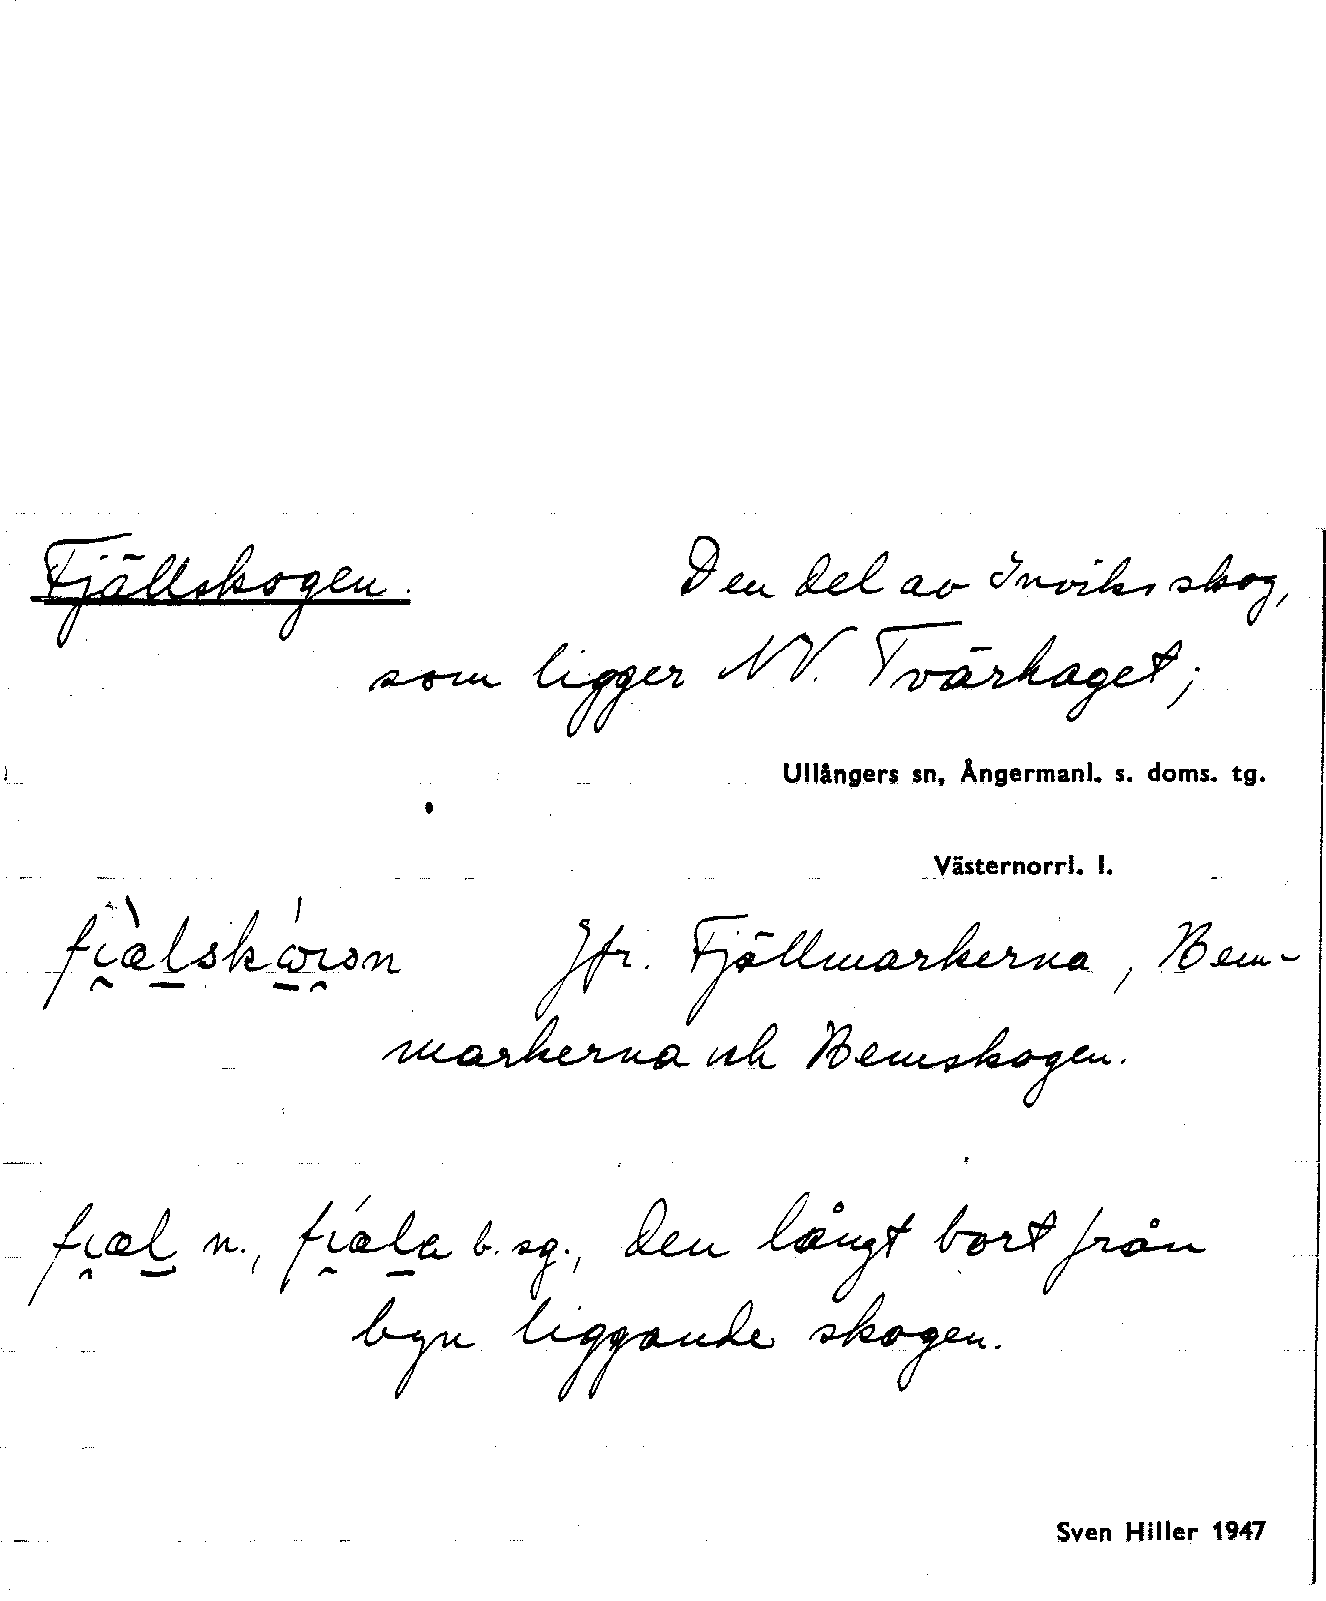 Fjällskogen. Den del av Inviks skog,
som ligger NV. Tvärhaget;
Ullångers sn, Ångermanl. s. doms. tg.
Västernorrl. l.
Jfr. Fjällmarkerna, Bem-
markerna och Bemskogen.
n., b. sg., den långt bort från
byn liggande skogen.
Sven Hiller 1947